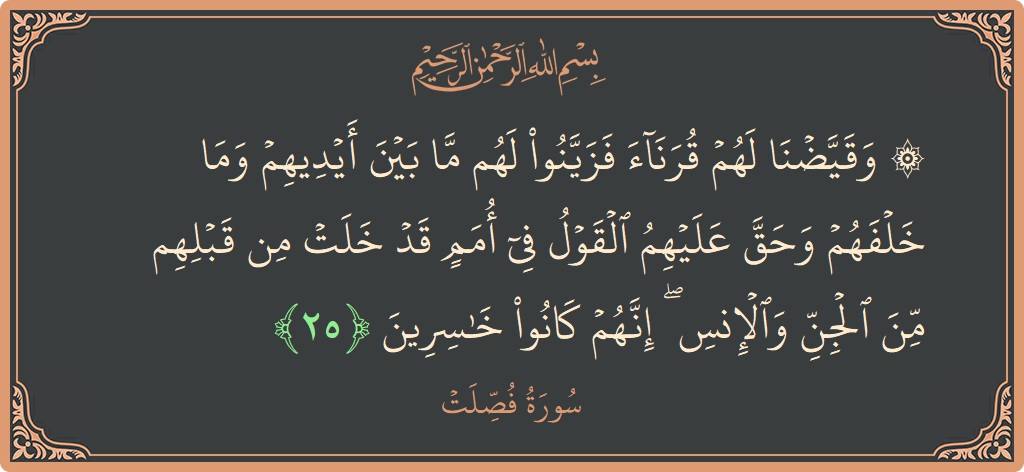 بِسْمِ ٱللَّهِ ٱلرَّحْمَٰنِ ٱلرَّحِيمِ
۞ وَقَيَّضْنَا لَهُمْ قُرَنَآءَ فَزَيَّنُوا۟ لَهُم مَّا بَيْنَ أَيْدِيهِمْ وَمَا
خَلْفَهُمْ وَحَقَّ عَلَيْهِمُ ٱلْقَوْلُ فِىٓ أُمَمٍ قَدْ خَلَتْ مِن قَبْلِهِم
مِّنَ ٱلْجِنِّ وَٱلْإِنسِ ۖ إِنَّهُمْ كَانُوا۟ خَـٰسِرِينَ ﴿٢٥﴾
سُورَةُ فُصِّلَتْ